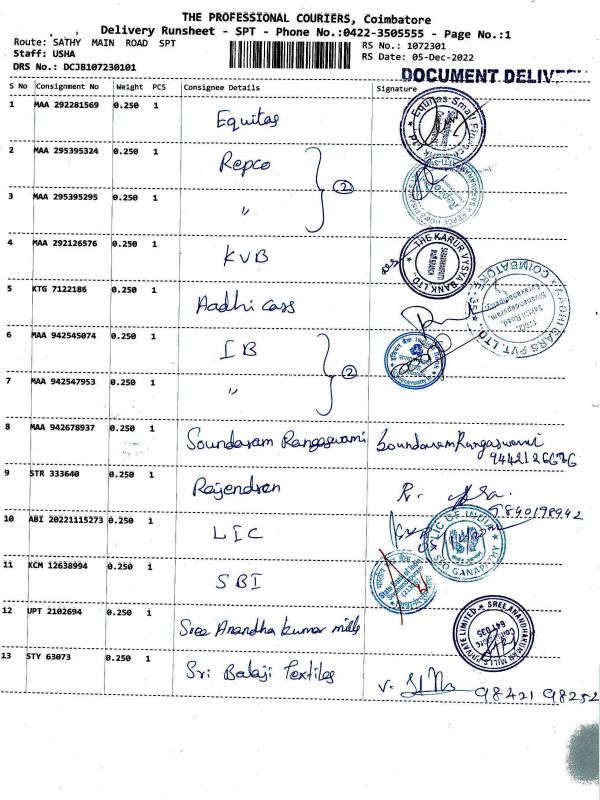 THE PROFESSIONAL COURIERS, Coimbatore
Delivery Runsheet - SPT - Phone No.:0422-3505555 - Page No.:1
Route: SATHY MAIN ROAD SPT
RS No.: 1072301
Staff: USHA
RS Date: 05-Dec-2022
DRS No.: DCJB107230101
DOCUMENT DELIVE
S No Consignment No Weight PCS Consignee Details Signature
1 MAA 292281569 0.250 1 Equitas
2 MAA 295395324 0.250 1 Repco
(2)
3 MAA 295395295 0.250 1 "
4 MAA 292126576 0.250 1 KVB
THE KARUR VYSYA BANK LTD.
5 KTG 7122186 0.250 1 Aadhi cars
AADHI CARS PVT LTD. COIMBATORE - 35
6 MAA 942545074 0.250 1 IB
(2)
7 MAA 942547953 0.250 1 "
8 MAA 942678937 0.250 1 Soundaram Rangaswami Soundaram Rangaswami
9442126676
9 STR 333640 0.250 1 Rajendran R.
9840198942
10 ABI 20221115273 0.250 1 LIC
LIC OF INDIA
SSO GANAPATHY
11 KCM 12638994 0.250 1 SBI
State Bank of India
12 UPT 2102694 0.250 1 Sree Anandha kumar mills
SREE ANANDHAKUMAR MILLS PRIVATE LIMITED
641035
13 STY 63073 0.250 1 Sri Balaji Textiles V.
98421 98252